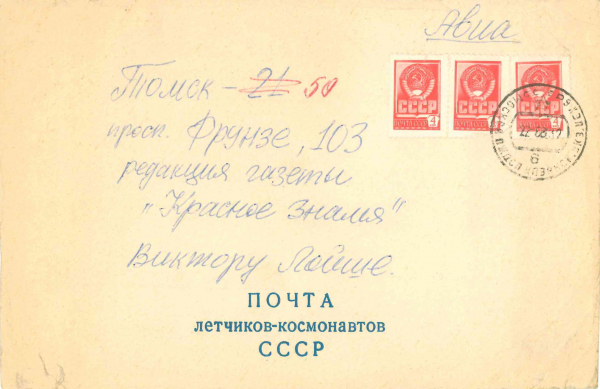 Авиа
Томск - 21 50
просп. Фрунзе, 103
редакция газеты
"Красное знамя"
Виктору Лойше.
СССР
СССР
СССР
ПОЧТА
летчиков-космонавтов
СССР